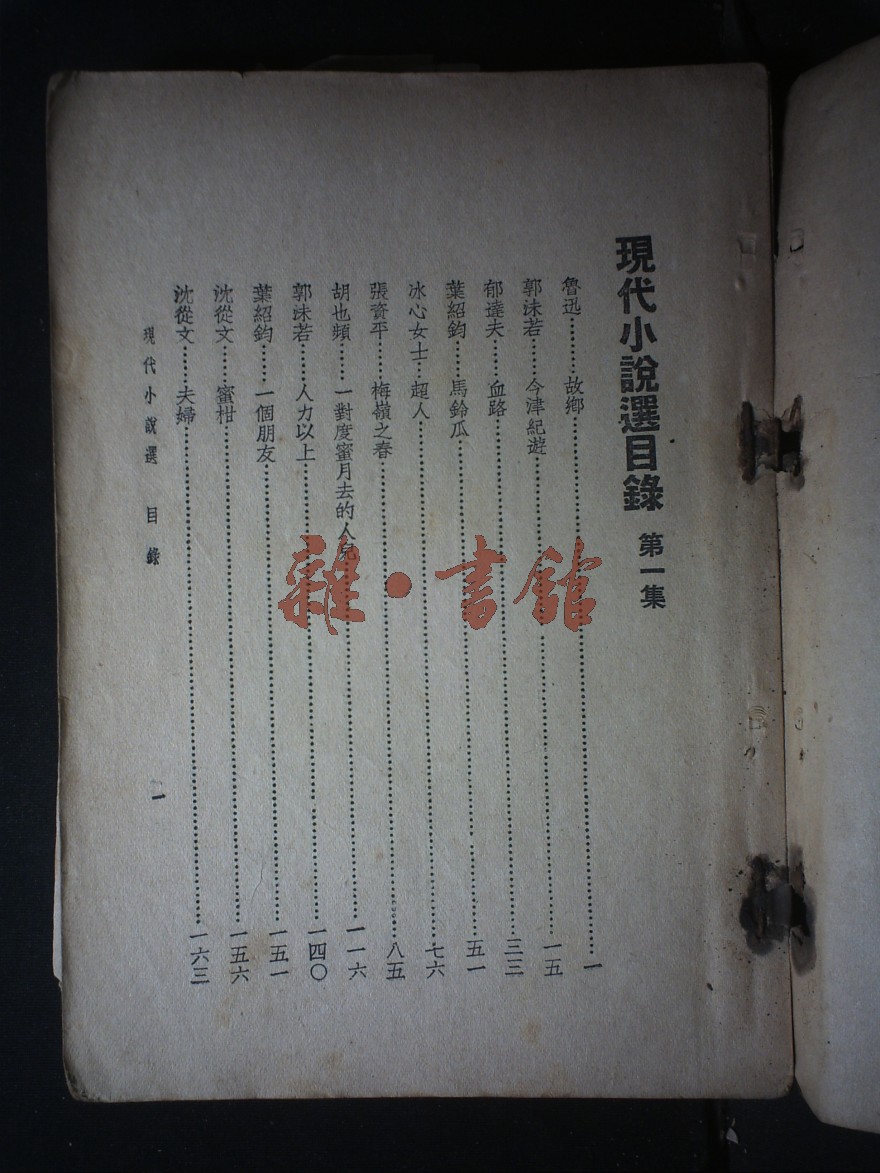 現代小說選目錄 第一集
魯迅……故鄉……一
郭沫若……今津紀遊……一五
郁達夫……血路……三三
葉紹鈞……馬鈴瓜……五一
冰心女士…超人……七六
張資平……梅嶺之春……八五
胡也頻……一對度蜜月去的人兒……一一六
郭沫若……人力以上……一四〇
葉紹鈞……一個朋友……一五一
沈從文……蜜柑……一五六
沈從文……夫婦……一六三
現代小說選 目錄
一
雜·書館